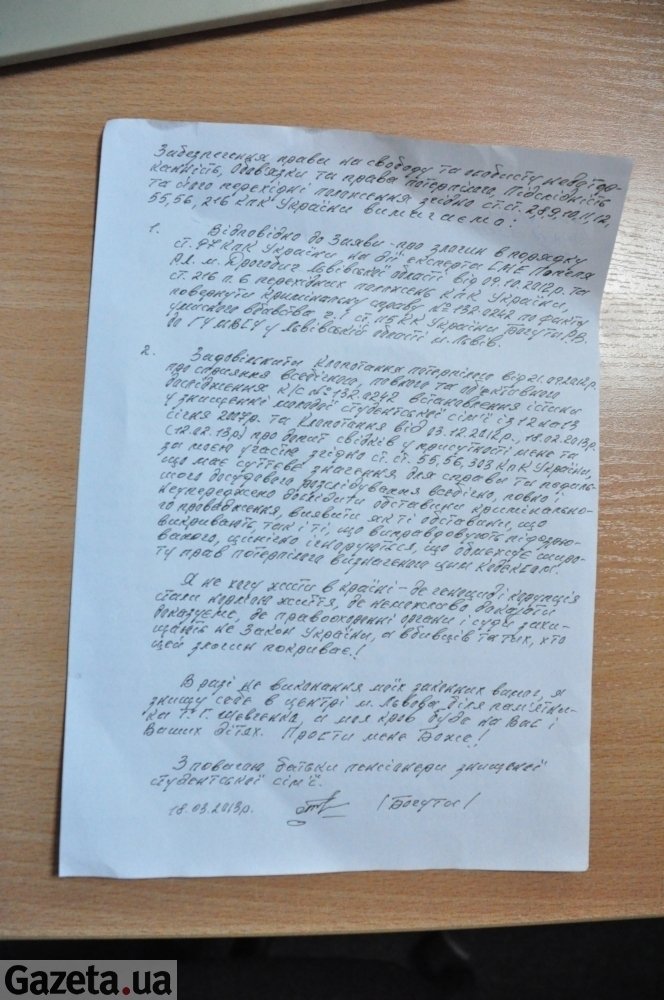 Забезпечення права на свободу та особисту недотор-
канність, Обов'язки та права потерпілого, Підслідність
та його перехідні положення згідно ст.ст. 2,8,9,10,11,12,
55,56, 216 КПК України вимагаємо:
1. Відповідно до Заяви про злочин в порядку
ст. 97 КПК України на дії експерта СМЕ Попеля
м. Дрогобич Львівської області від 09.10.2012р. та
ст. 216 п. 6 перехідних положень КПК України,
повернути кримінальну справу № 132-0242 по факту
умисного вбивства ч. 1 ст. 115 КК України Богути Р.В.
до ГУМВСУ у Львівській області м. Львів.
2. Задовільнити Клопотання потерпілого від 21.09.2012р.
про сприяння всебічного, повного та об'єктивного
дослідження К/С № 132-0242 встановлення істини
у знищенні молодої студентської сім'ї із 12 на 13
січня 2007р. та Клопотання від 03.12.2012р., 18.02.2013р.
(12.02.13р) про допит свідків у присутності мене та
за моєю участю згідно ст. ст. 55, 56, 303 КПК України,
що має суттєве значення для справи та подаль-
шого досудового розслідування всебічно, повно і
неупереджено дослідити обставини кримінально-
го провадження, виявити як ті обставини, що
викривають так і ті, що виправдовують підозрю-
ваного, цинічно ігноруються, що обмежує широ-
ту прав потерпілого визначеного цим Кодексом.
Я не хочу жити в країні – де геноцид і корупція
стали нормою життя, де неможливо доказати
доказуєме, де правоохоронні органи і суди захи-
щають не Закон України, а вбивців та тих, хто
цей злочин покриває!
В разі не виконання моїх законних вимог, я
знищу себе в центрі м. Львова, біля пам'ятни-
ка Т. Г. Шевченка, а моя кров буде на Вас і
Ваших дітях. Прости мене Боже!
З повагою батьки пенсіонери знищеної
студентської сім'ї.
18.03.2013р. /Богути/
Gazeta.ua